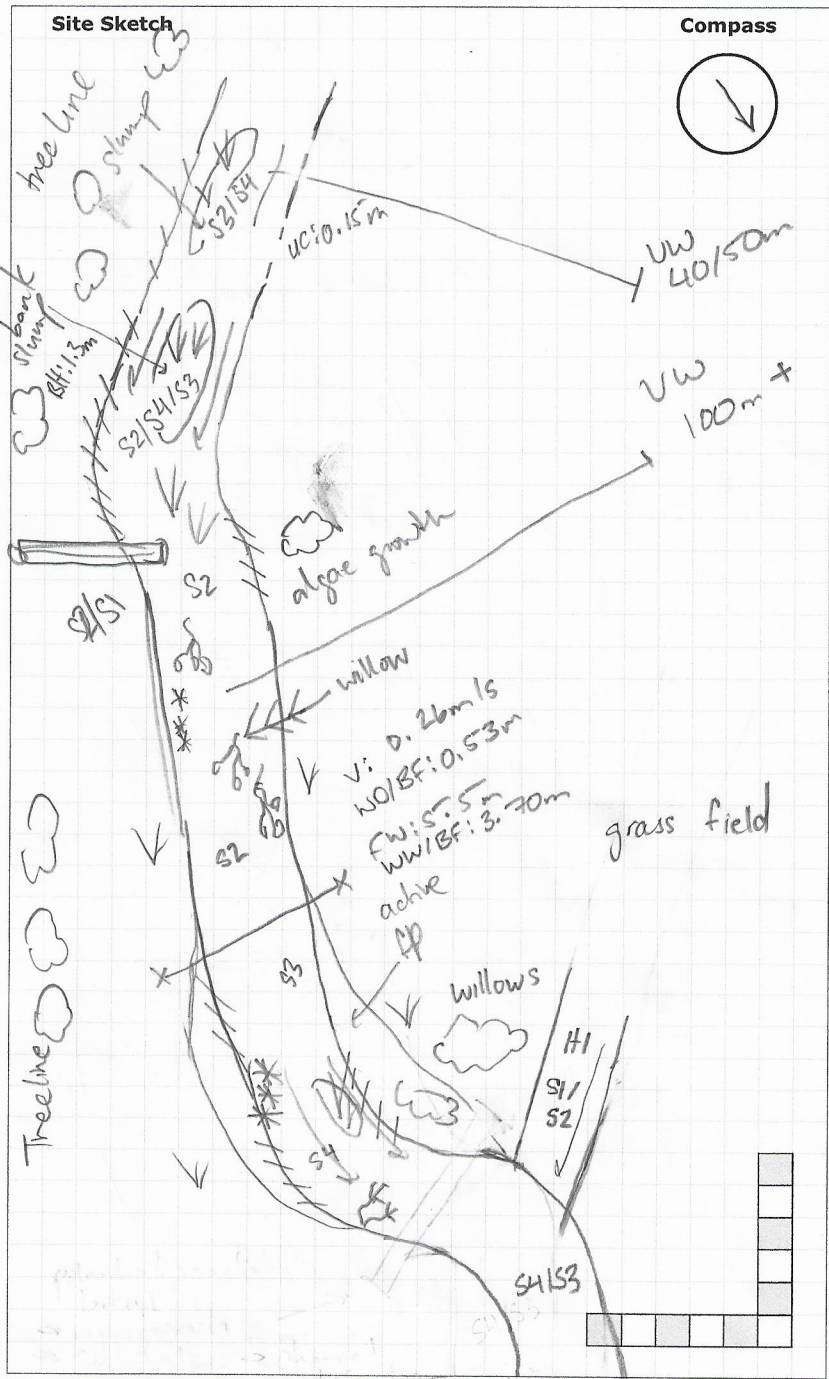 Site Sketch
Compass
tree line
slump
S3/S4
UC:0.15m
UW
40/50m
bank
slump
BH:1.3m
S2/S4/S3
UW
100m +
algae growth
S2
S2/S1
willow
V: 0.26m/s
WD/BF: 0.53m
FW: 5.5m
WW/BF: 3.70m
active
fp
S2
grass field
S3
willows
H1
S1/
S2
Treeline
S4
S4/S3